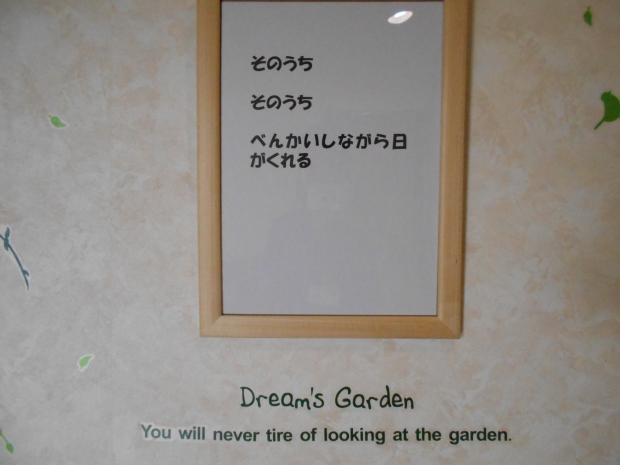 そのうち
そのうち
べんかいしながら日
がくれる
Dream's Garden
You will never tire of looking at the garden.